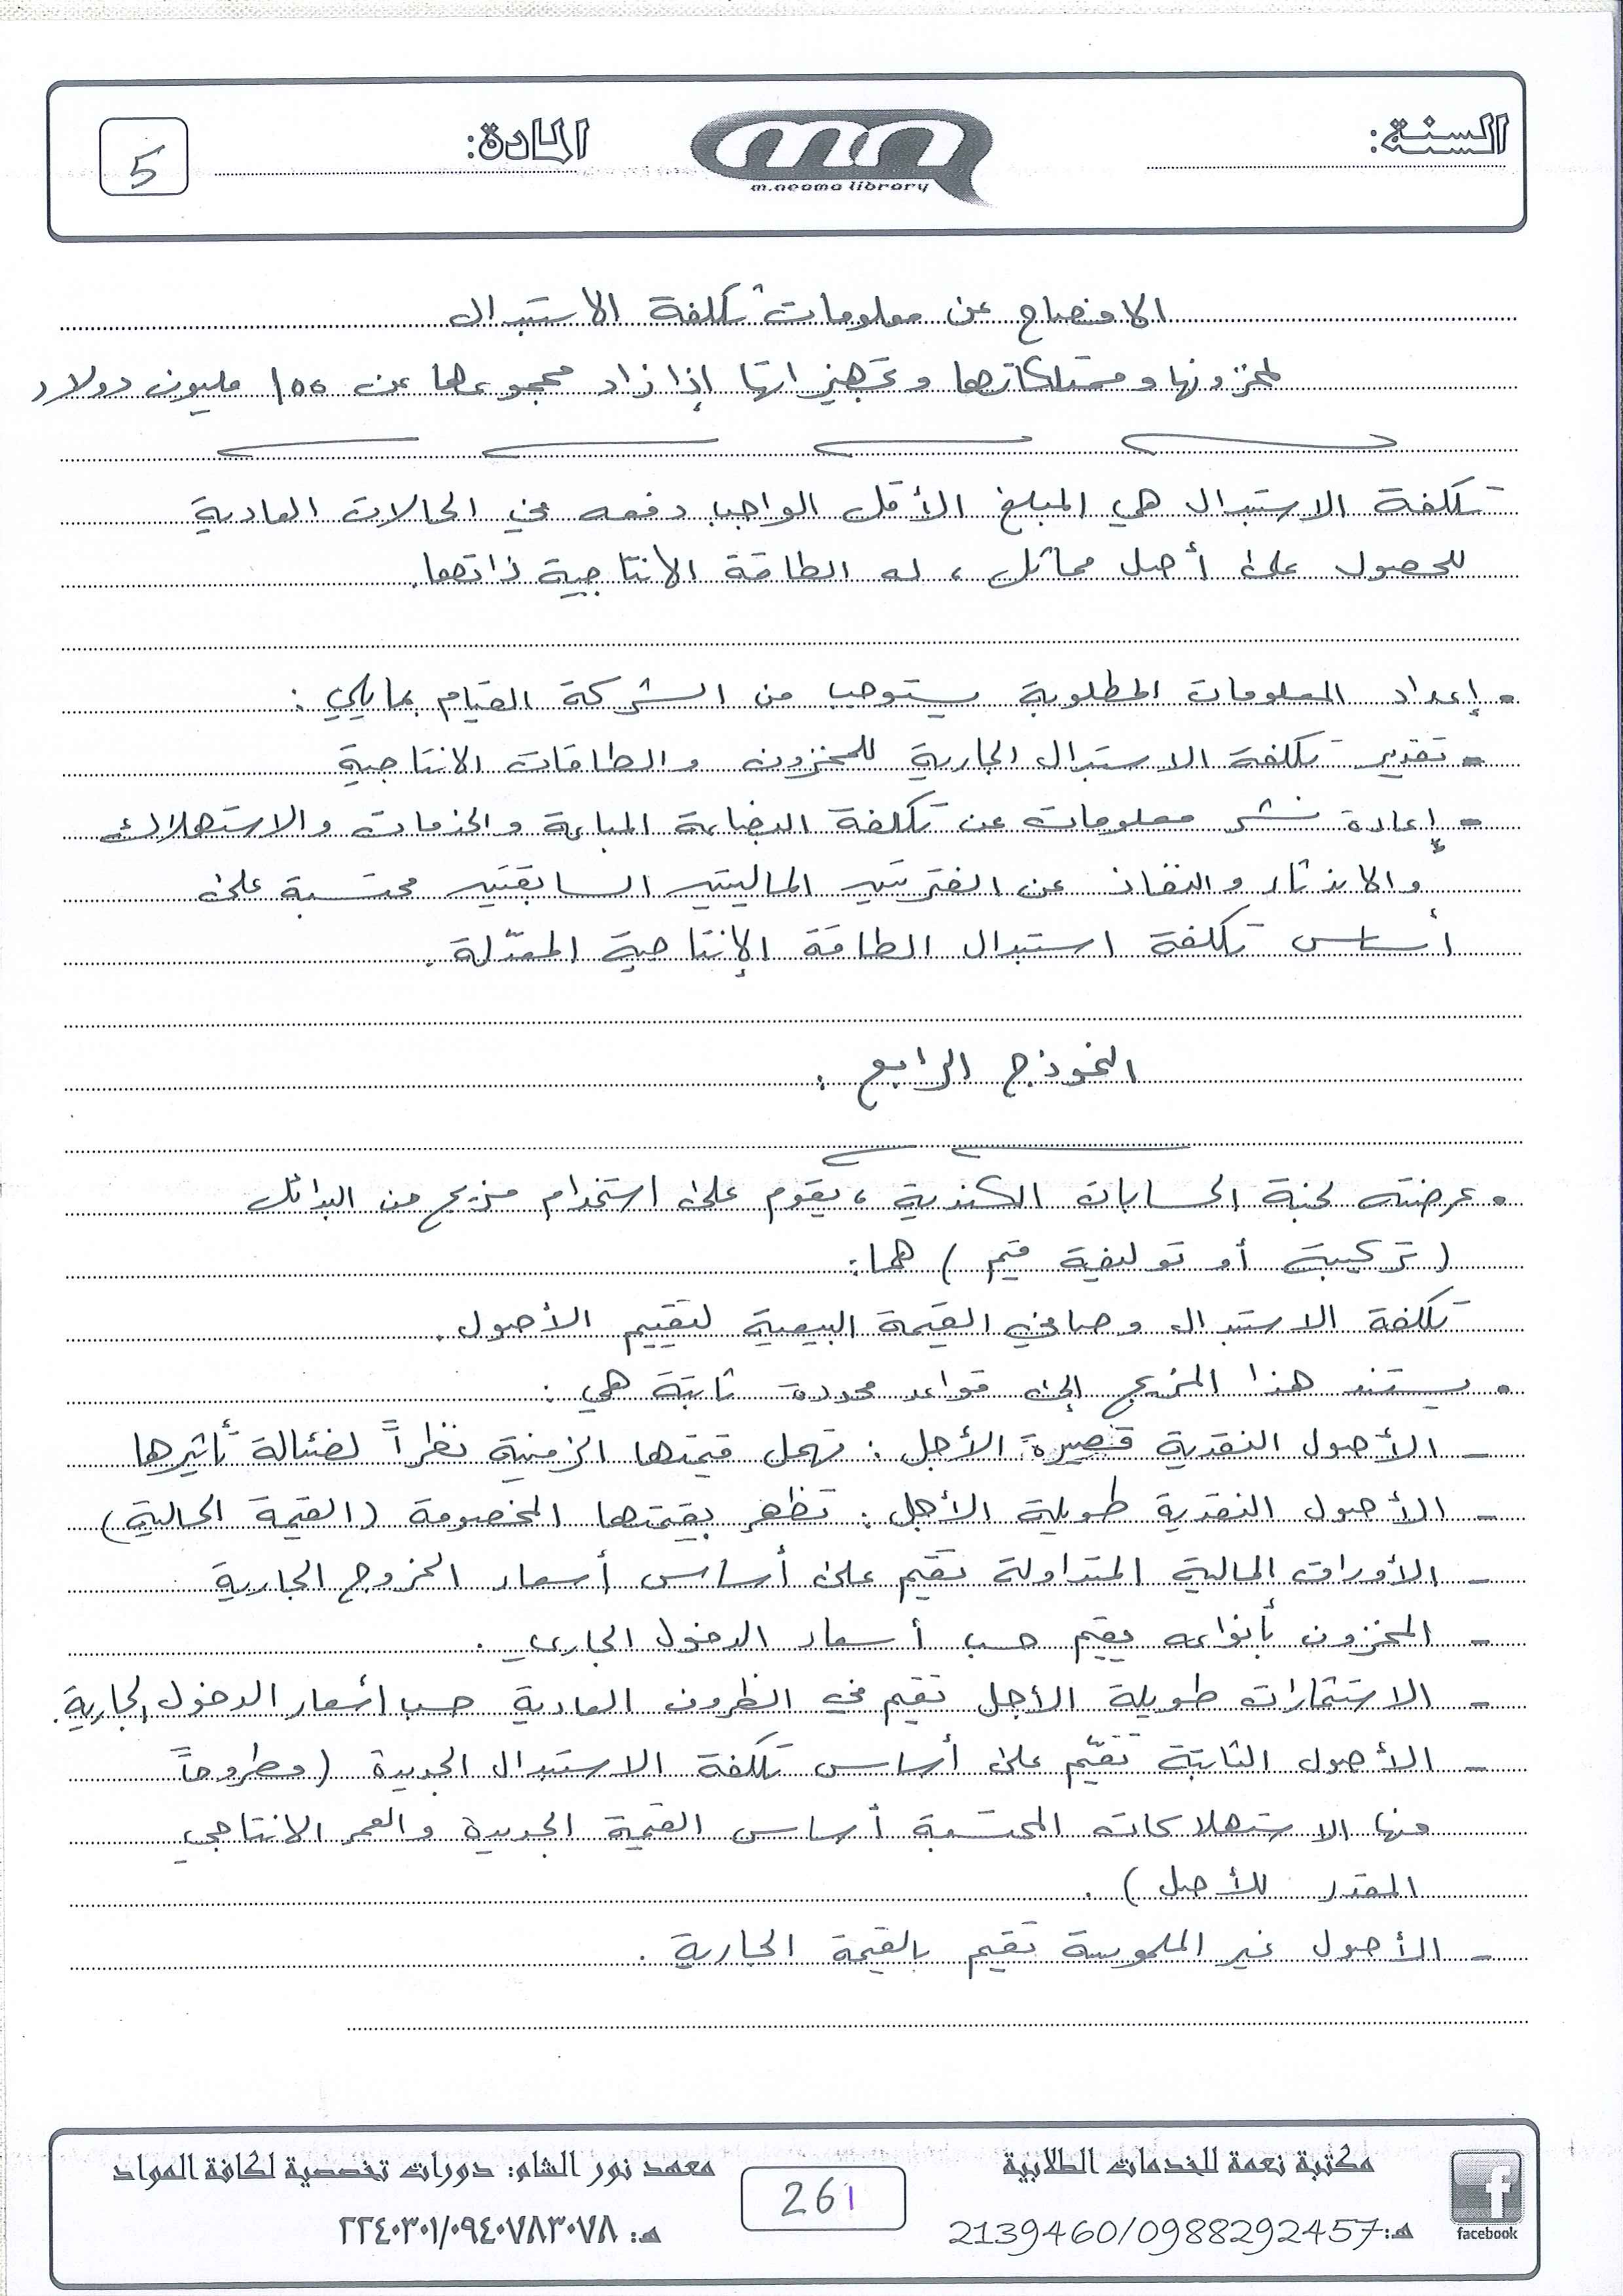 السنة:
mn
m.neoma library
المادة:
5
الافصاح عن معلومات تكلفة الاستبدال
لمخزونها وممتلكاتها وتجهيزاتها إذا زاد مجموعها عن 100 مليون دولار
تكلفة الاستبدال هي المبلغ الأقل الواجب دفعه في الحالات العادية
للحصول على أصل مماثل، له الطاقة الانتاجية ذاتها.
• إعداد المعلومات المطلوبة يستوجب من الشركة القيام بمايلي :
- تقدير تكلفة الاستبدال الجارية للمخزون والطاقات الانتاجية
- إعادة نشر معلومات عن تكلفة البضاعة المباعة والخدمات والاستهلاك
والاندثار والنفاذ عن الفترتين الماليتين السابقتين محتسبة على
أساس تكلفة استبدال الطاقة الإنتاجية المعدّلة.
النموذج الرابع :
• عرضته لجنة الحسابات الكندية، يقوم على استخدام مزيج من البدائل
(تركيبة أو توليفة قيم) هما:
تكلفة الاستبدال وصافي القيمة البيعية لتقييم الأصول.
• يستند هذا المزيج إلى قواعد محددة ثابتة هي :
- الأصول النقدية قصيرة الأجل : تهمل قيمتها الزمنية نظراً لضئالة تأثيرها
- الأصول النقدية طويلة الأجل : تظهر بقيمتها المخصومة (القيمة الحالية)
- الأوراق المالية المتداولة تقيّم على أساس أسعار الخروج الجارية
- المخزون بأنواعه يقيم حسب أسعار الدخول الجاري.
- الاستثمارات طويلة الأجل تقيم في الظروف العادية حسب أسعار الدخول الجارية.
- الأصول الثابتة تقيّم على أساس تكلفة الاستبدال الجديدة (مطروحاً
منها الاستهلاكات المحتسبة أساس القيمة الجديدة والعمر الانتاجي
المقدر للأصل).
- الأصول غير الملموسة تقيم بالقيمة الجارية.
facebook
مكتبة نعمة للخدمات الطلابية
هـ:2139460/0988292457
261
معهد نور الشام: دورات تخصصية لكافة المواد
هـ: ٢٢٤٠٣٠١/٠٩٤٠٧٨٣٠٧٨